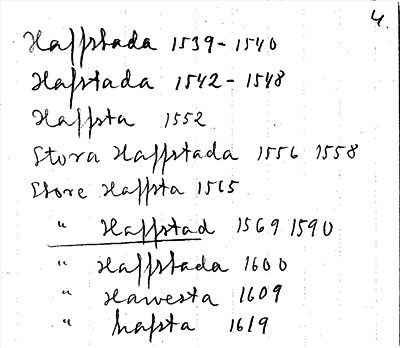 4.
Haffstada 1539-1540
Hafstada 1542-1548
Haffsta 1552
Stora Haffstada 1556 1558
Store Haffsta 1565
" Haffstad 1569 1590
" Haffstada 1600
" Hawesta 1609
" hafsta 1619